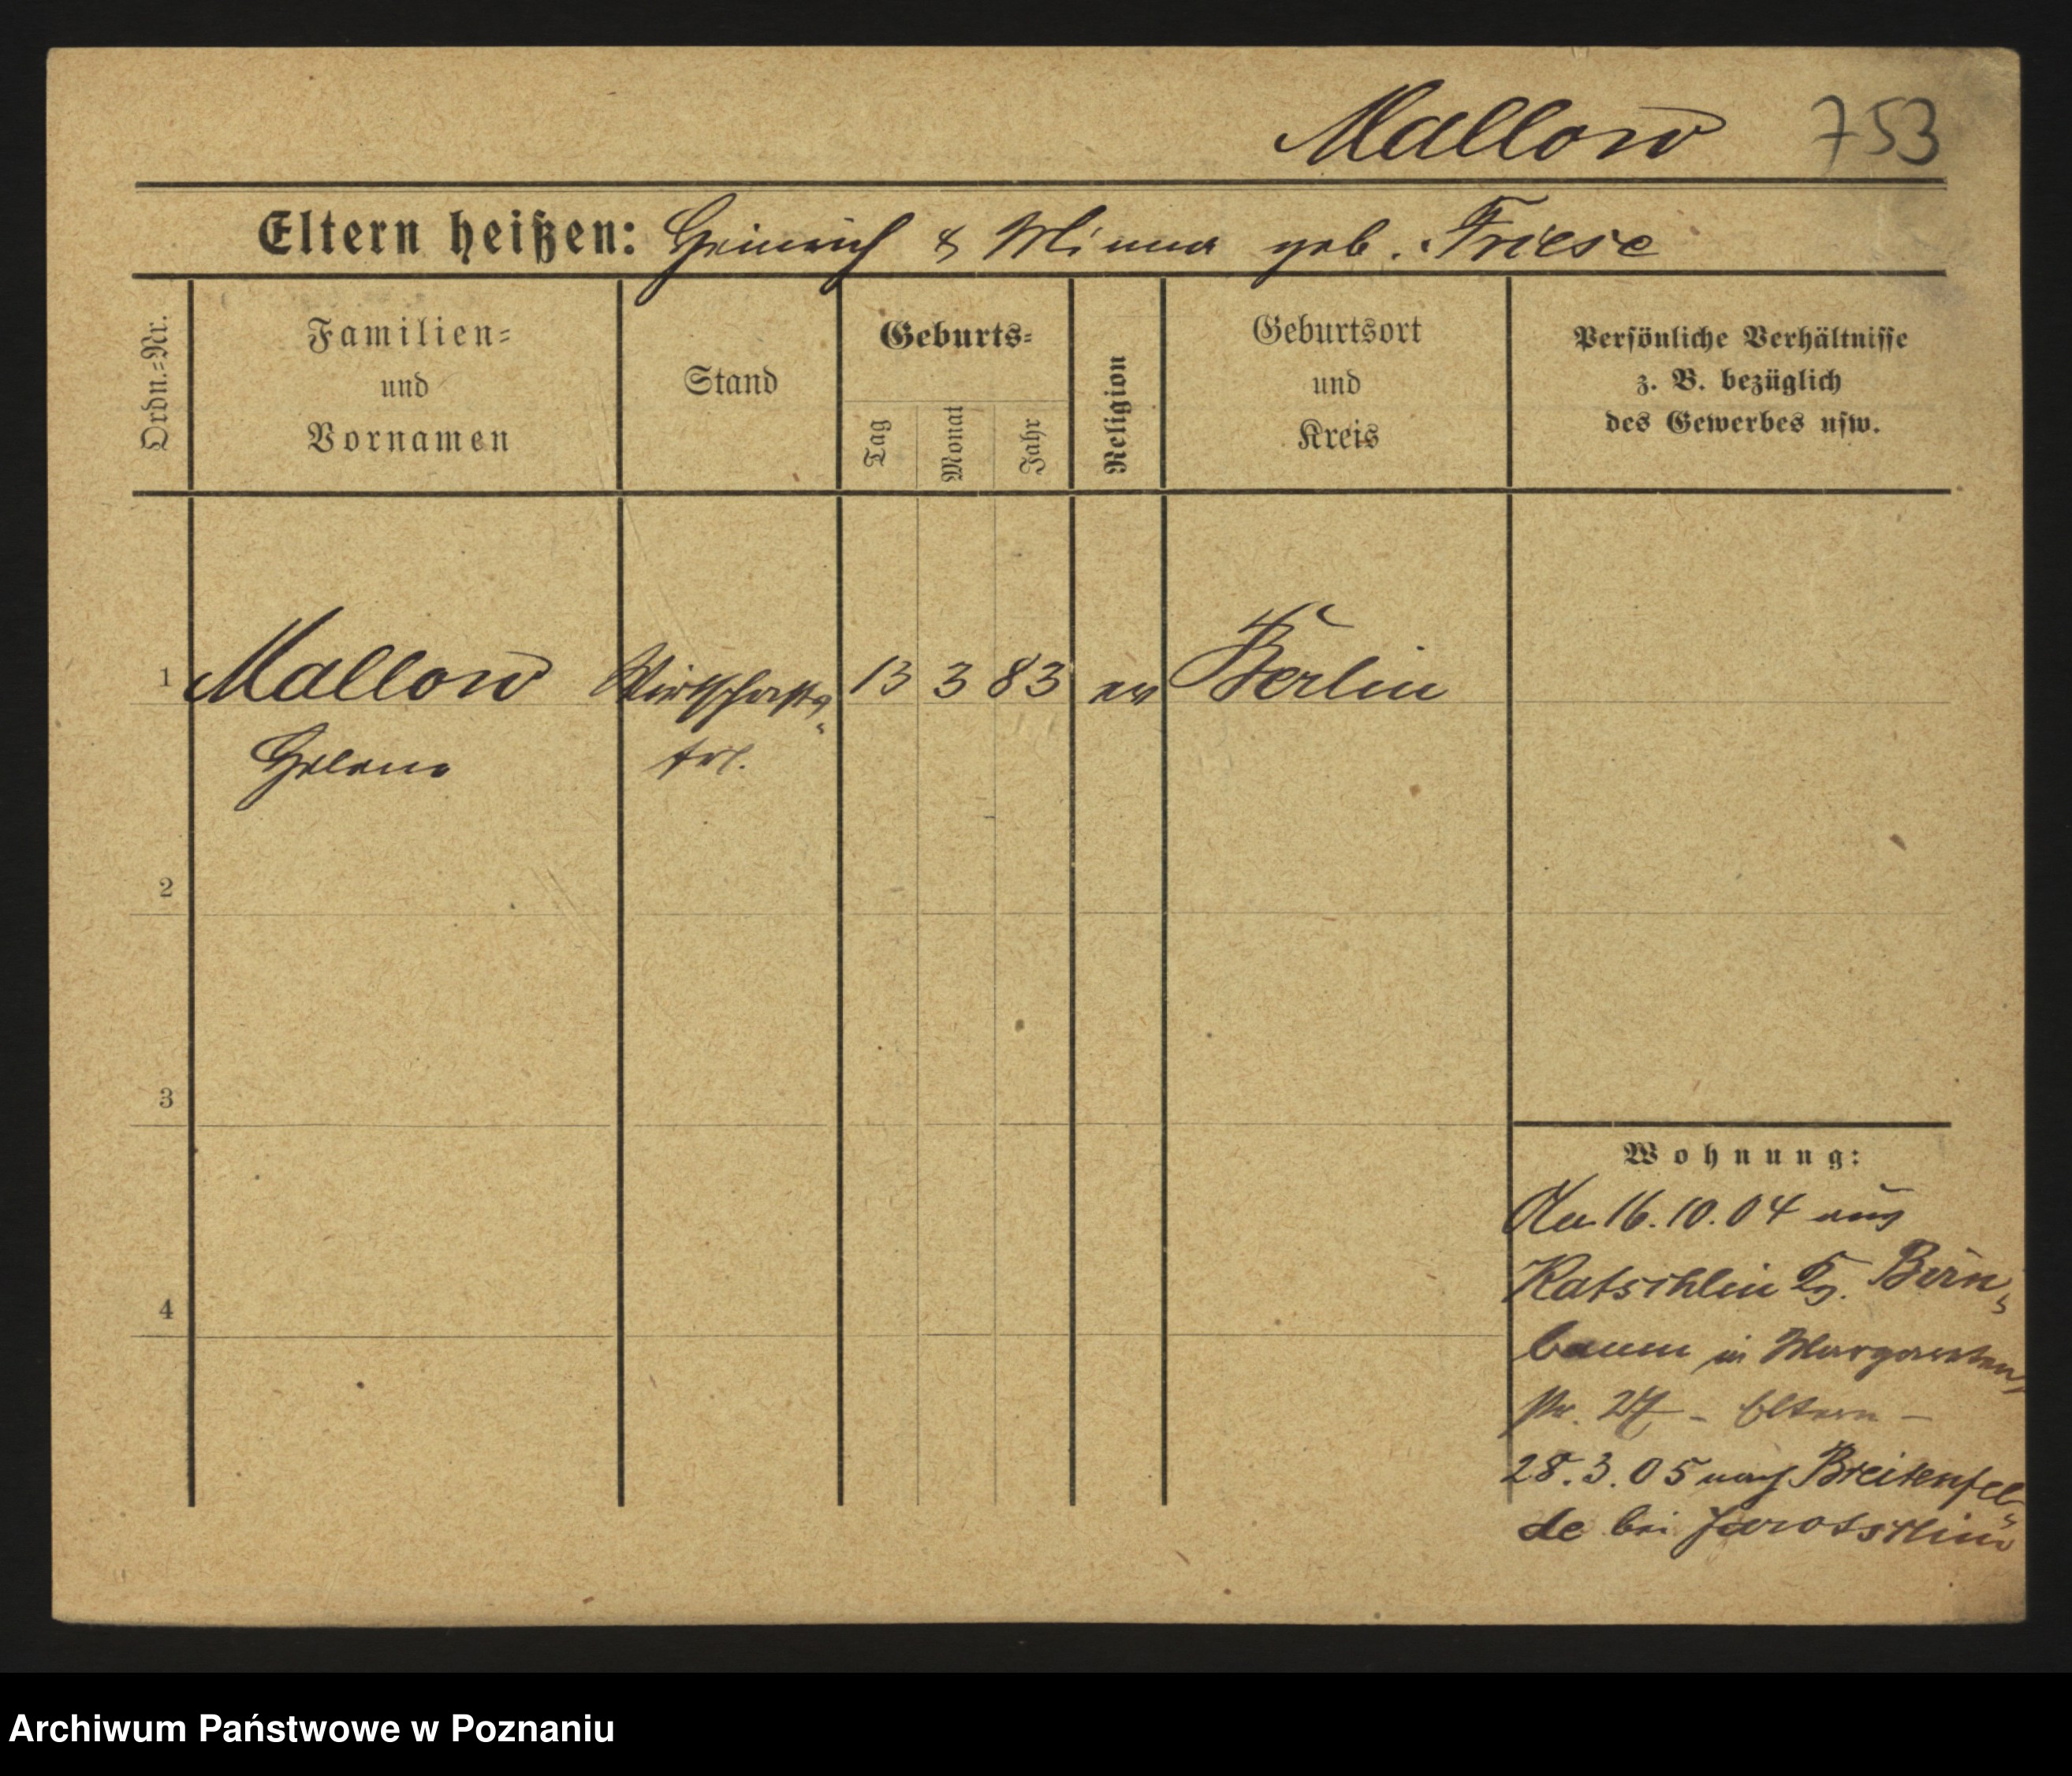 Mallow 753
Eltern heißen: Heinrich & Minna geb. Friese
Ordn.=Nr.
Familien=
und
Vornamen
Stand
Geburts=
Tag
Monat
Jahr
Religion
Geburtsort
und
Kreis
Persönliche Verhältnisse
z. B. bezüglich
des Gewerbes usw.
1 Mallow Wirtschafts- 13 3 83 ev Berlin
Helene frl.
2
3
4
Wohnung:
16.10.04 aus
Katschlin Birn-
baum in Margareten-
str. 27 - Eltern -
28.3.05 nach Breitenfel-
de bei Jarotschin
Archiwum Państwowe w Poznaniu